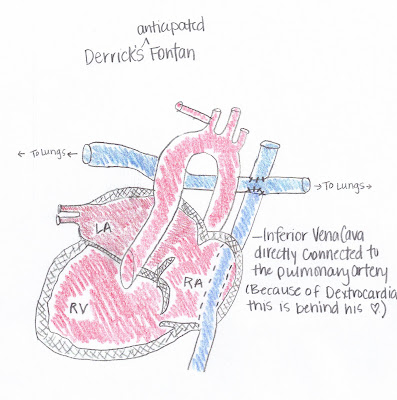 anticipated
Derrick's ^ Fontan
← To Lungs ←
→ To Lungs →
LA
RV
RA
– Inferior Vena Cava
directly connected to
the pulmonary artery
(Because of Dextrocardia
this is behind his ♡)